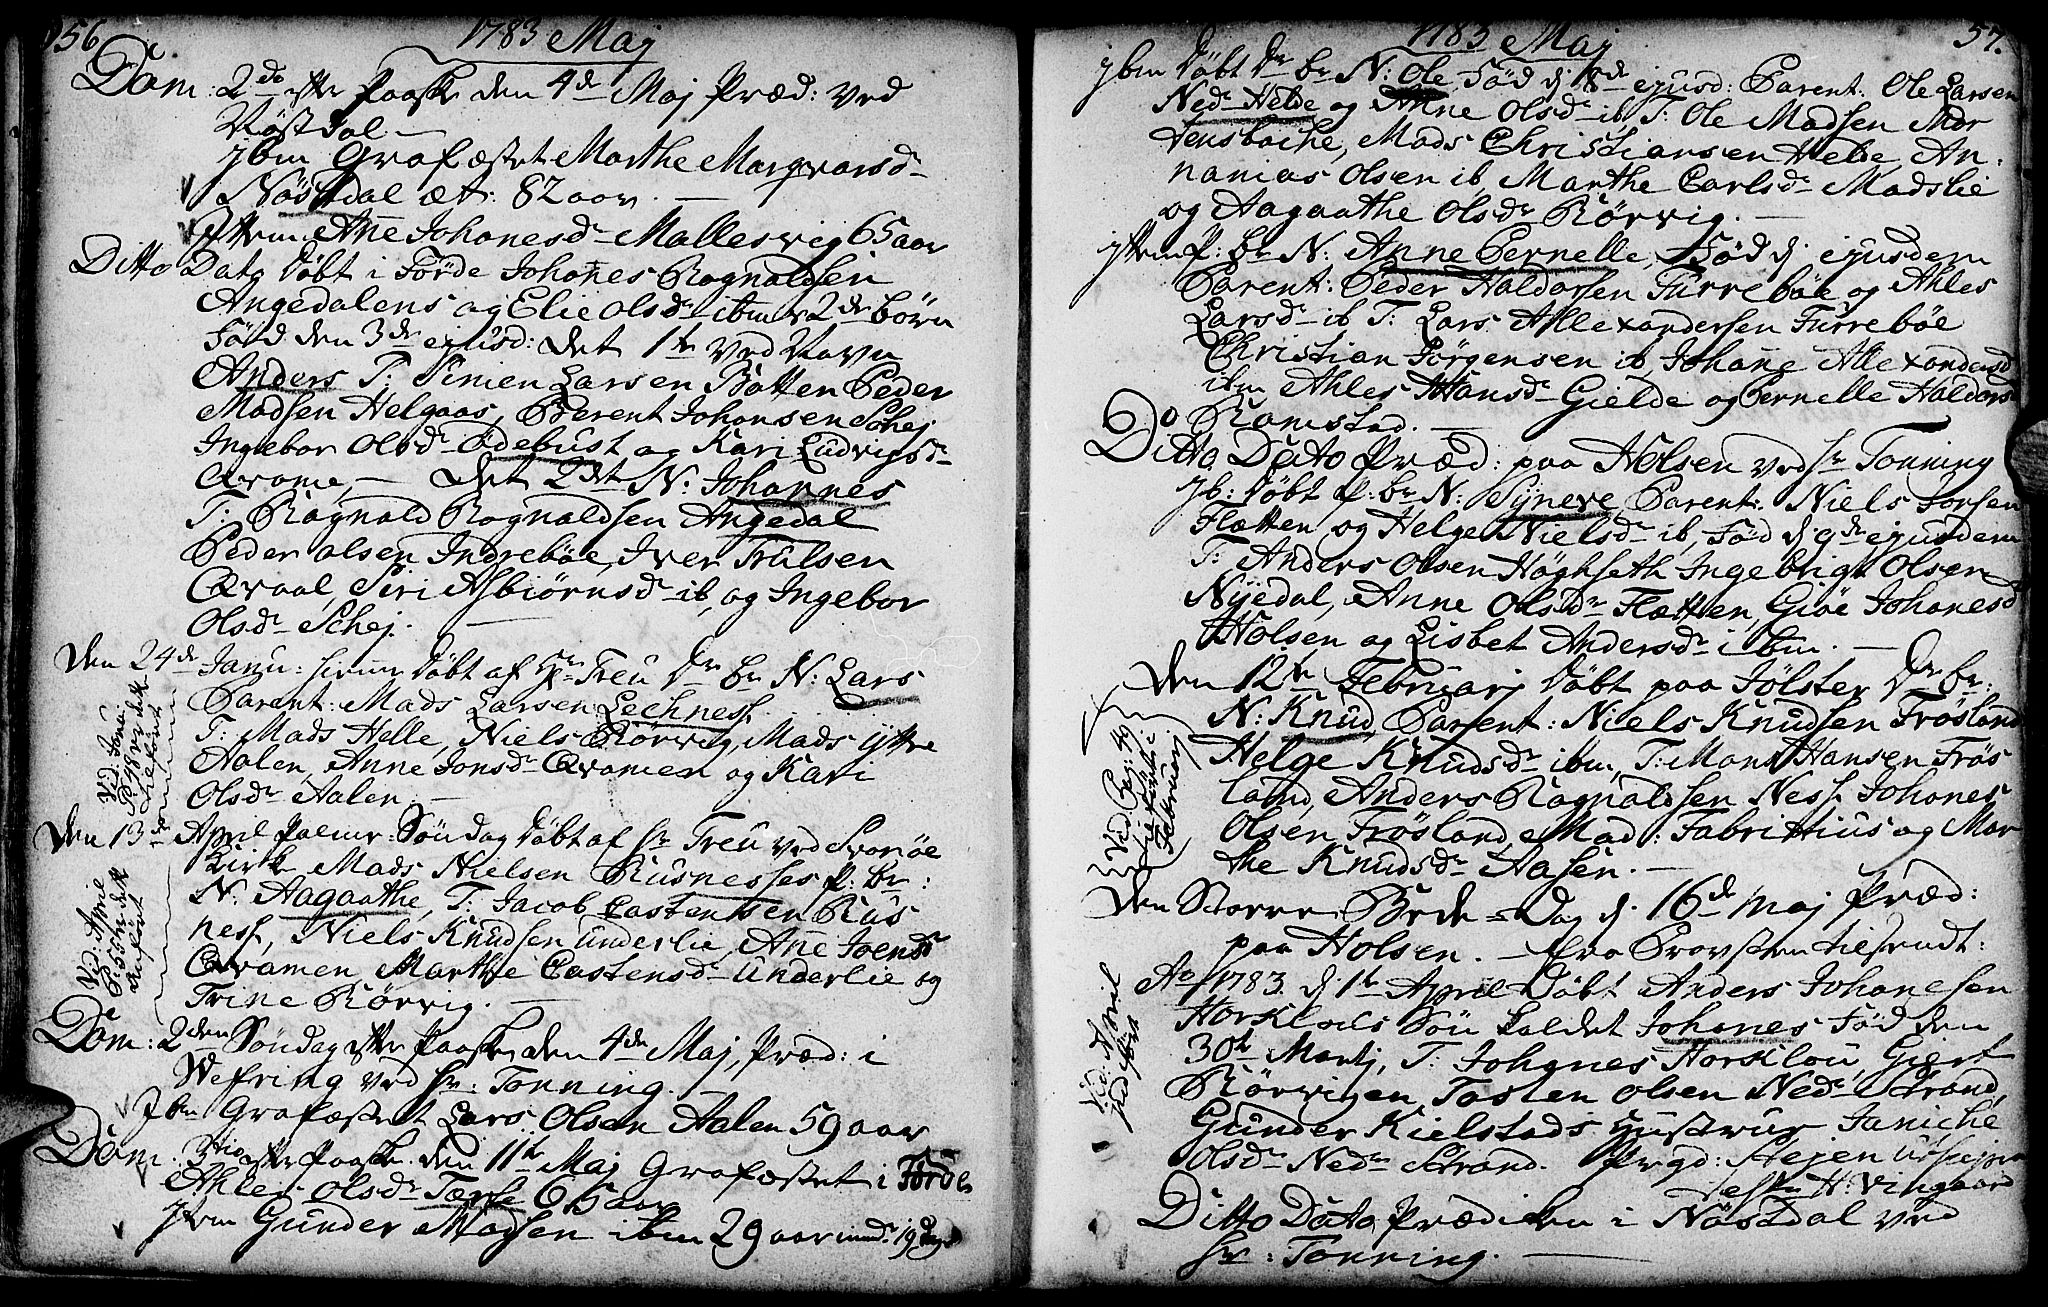 56
1783 Maj
Dom: 2de efter Paaske den 4de Maj Præd: ved
Nøstdal —
Ibm Grafæstet Marthe Margvarsdr
Nøstdal æt: 82 aar. —
Item Anne Johanesdr Mallesvig 65 aar
Ditto Dato Døbt i Førde Johanes Ragnaldsen
Angedalens og Elie Olsdr ibm 2de børn
Fød den 3de ejusd: det 1te ved Navn
Anders T: Simen Larsen Botten Peder
Madsen Helgaas, Berent Johansen Schej
Ingebor Olsdr Ødebust og Kari Ludvigsdr
Qvame, — det 2det N: Johannes
T: Ragnald Ragnaldsen Angedal
Peder Olsen Indrebøe, Iver Trulsen
Qvaal, Siri Asbiørnsdr ib, og Ingebor
Olsdr Schej. —
Den 24de Janu: Døbt af Hr Treu Dr Br N: Lars
Parent: Mads Larsen Lechness.
T: Mads Helle, Niels Rørvig, Mads ytre
Aalen, Anne Jonsdr Qvamen og Kari
Olsdr Aalen. —
Vid: Janu:
Den 13de April Palme-Søndag Døbt af Hr Treu ved Svanøe
Kirke Mads Nielsen Rusnesses P: Br:
N: Aagaathe, T: Jacob Castensen Rus
ness, Niels Knudsen Underlie, Anne Joensdr
Qvamen Marthe Castensdr Underlie og
Trine Rørvig. —
Vid: April
Dom: 2den Søndag efter Paaske, den 4de Maj, Præd: i
Wefring ved Hr: Tonning. —
Ibm Grafæstet Lars Olsen Aalen 59 aar
Dom: 3tio efter Paaske den 11te Maj Grafæstet i Førde
Ahles Olsdr Tarse 65 aar
Item Gunder Madsen ibm 29 aar 19 dage
57.
1783 Maj
Ibm Døbt Dr Br N: Ole, Fød d 8de ejusd: Parent: Ole Larsen
Nedr Helde og Anne Olsdr ib T: Ole Madsen Mor
densbache, Mads Christiansen Helde, An-
nanias Olsen ib, Marthe Carlsdr Madslie
og Aagaathe Olsdr Rørvig. —
Item P: Br N: Anne Pernelle, Fød d ejusdem
Parent: Peder Haldorsen Furrebøe og Ahles
Larsdr ib T: Lars Allexandersen Furrebøe
Christian Jørgensen ib Johane Allexandersd
ibm Ahles Hansdr Gielde og Pernelle Haldorsd
Ramstad. —
Do
Ditto Dato Præd: paa Holsen ved Hr Tonning
Ib: Døbt P: Br N: Syneve, Parent: Niels Jorsen
Flætten og Helge Nielsdr ib, Fød d 9de ejusdem
T: Anders Olsen Høghseth Ingebrigt Olsen
Nyedal, Anne Olsdr Flætten, Giøe Johanesd
Holsen og Lisbet Andersdr ibm. —
Den 12te Februarj Døbt paa Jølster Dr br:
N: Knud, Parent: Niels Knudsen Frøsland
Helge Knudsdr ibm, T: Mons Hansen Frøs
land, Anders Ragnaldsen Ness Johanes
Olsen Frøsland, Mad: Fabrittius og Mar
the Knudsdr Aasen. —
Vid: Pag: 49
Februarj
Den Store Bede-Dag d. 16de Maj Præd:
paa Holsen. — fra Provsten tilsendt:
Ao 1783. d. 1te April Døbt Anders Johanesen
Horsklaus Søn kaldet Johanes Fød den
30te Martj, T: Johanes Horsklou, Giert
Rørvigen, Tosten Olsen Nedr Strand,
Gunder Kielstads Hustrue Janiche
Olsdr Nedr Strand.
Vid: April
indført
Ditto Dato Prædiken i Nøstdal ved
Hr: Tonning. —